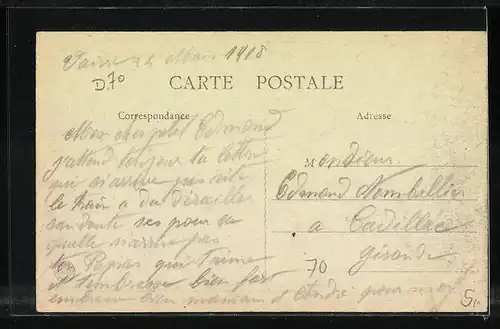 24 Mars 1915
D.70
CARTE POSTALE
Correspondance
Adresse
Mon cher petit Edmond
j'attend toujour ta lettre
qui n'arrive pas vite
le train a du derailler
san doute ses pour ca
quelle n'arrive pas
ton Papa qui t'aime
et t'embrasse bien fort
embrasse bien maman et André pour moi
Monsieur
Edmond
a Cadillac
Gironde
70